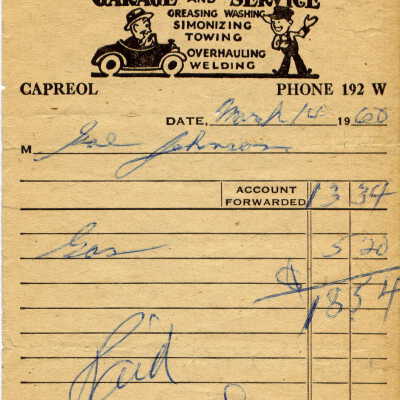 GARAGE AND SERVICE
GREASING WASHING
SIMONIZING
TOWING
OVERHAULING
WELDING
CAPREOL PHONE 192 W
DATE, March 14 1960
M Johnson
ACCOUNT FORWARDED 13 34
Gas 5 20
$ 18 54
Paid